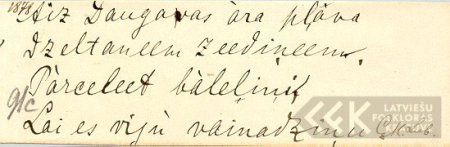 Aiz Daugavas āra pļava
Dzelteneem zeedineem,
Pārceleet bāleliņi,
9/c
Lai es viju vainadziņu
LATVIEŠU
FOLKLORAS